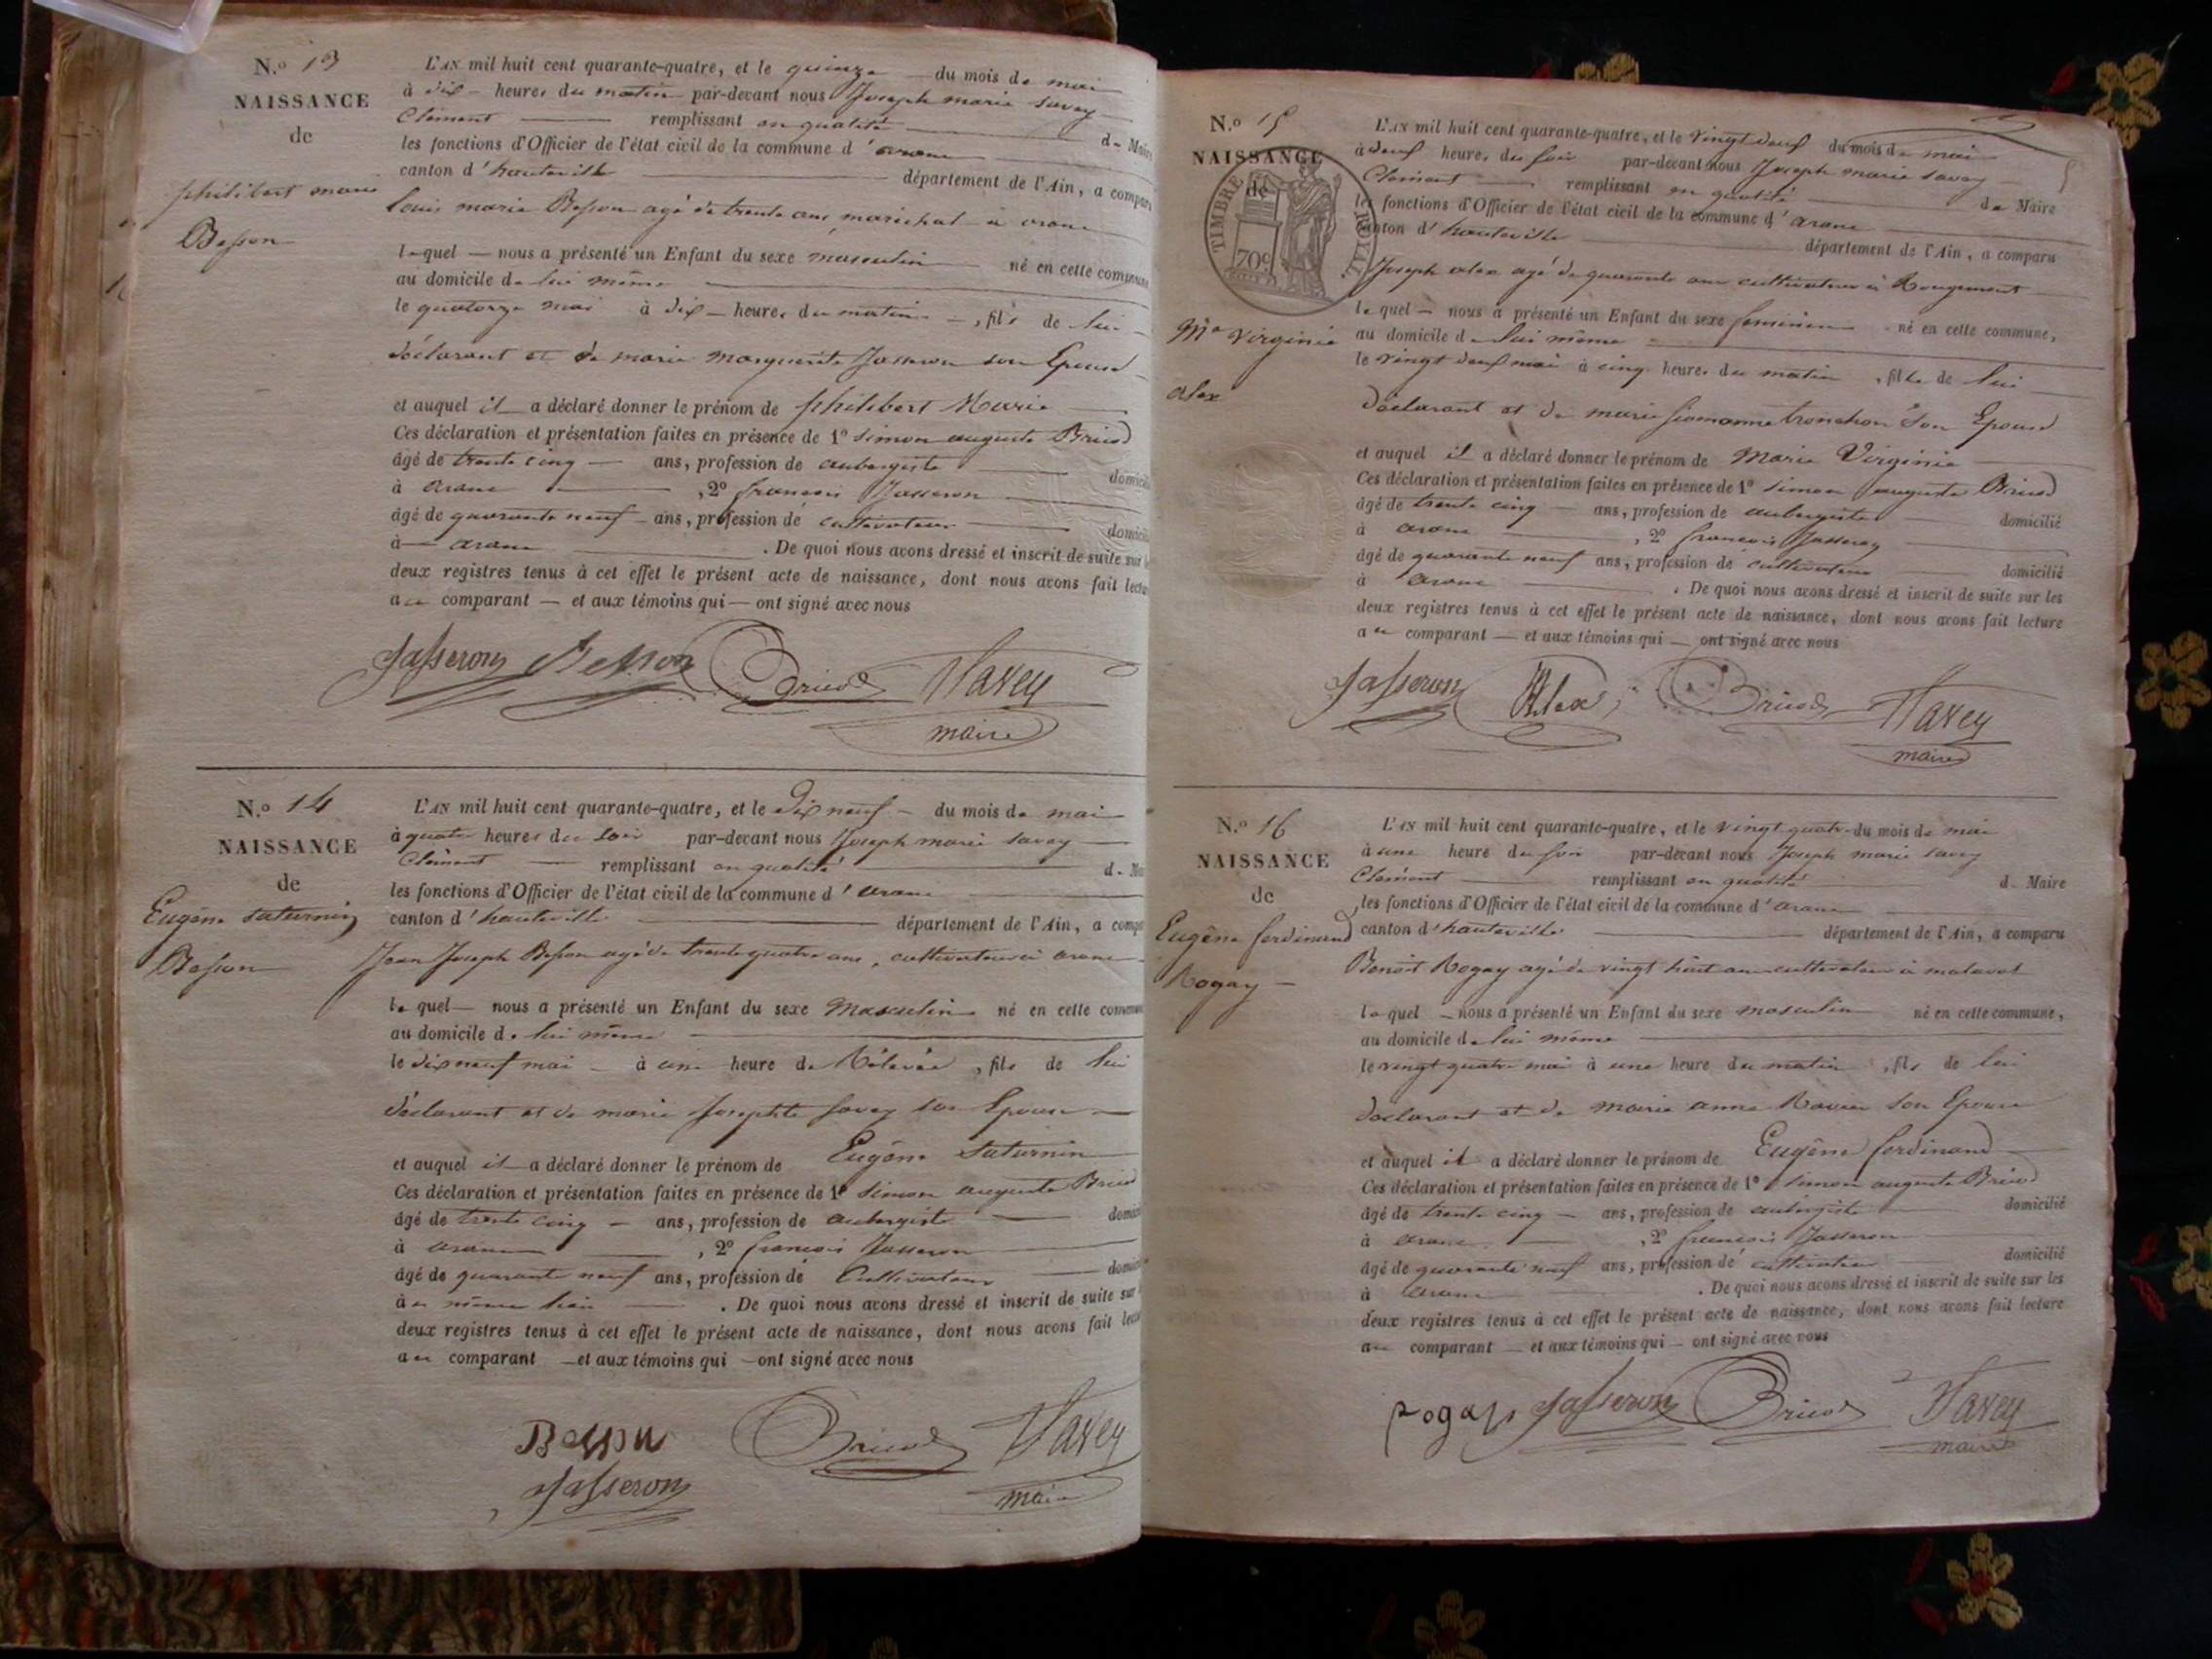 N.o 13
NAISSANCE
de
philibert marie
Besson
L'AN mil huit cent quarante-quatre, et le quinze du mois de mai
à dix heures du matin par-devant nous Joseph marie savey
Clément remplissant en qualité de Maire
les fonctions d'Officier de l'état civil de la commune d'arane
canton d'hauteville département de l'Ain, a comparu
louis marie Besson agé de trente ans maréchal à arane
lequel nous a présenté un Enfant du sexe masculin né en cette commune
au domicile de lui même
le quatorze mai à dix heures du matin, fils de lui
déclarant et de marie marguerite Jasseron son Epouse
et auquel il a déclaré donner le prénom de philibert Marie
Ces déclaration et présentation faites en présence de 1o simon auguste Bricod
âgé de trente cinq ans, profession de aubergiste
à arane, 2o françois Jasseron
âgé de quarante neuf ans, profession de cultivateur
à arane. De quoi nous avons dressé et inscrit de suite sur
deux registres tenus à cet effet le présent acte de naissance, dont nous avons fait
au comparant et aux témoins qui ont signé avec nous
Jasseron Besson Bricod Savey
maire
N.o 14
NAISSANCE
de
Eugène saturnin
Besson
L'AN mil huit cent quarante-quatre, et le Dix neuf du mois de mai
à quatre heures du soir par-devant nous Joseph marie savey
Clément remplissant en qualité
les fonctions d'Officier de l'état civil de la commune d'arane
canton d'hauteville département de l'Ain, a
Jean Joseph Besson agé de trente quatre ans, cultivateur à arane
lequel nous a présenté un Enfant du sexe Masculin né en cette
au domicile de lui même
le dix neuf mai à une heure de Relevée, fils de lui
déclarant et de marie Josephte savey son Epouse
et auquel il a déclaré donner le prénom de Eugène saturnin
Ces déclaration et présentation faites en présence de 1o simon auguste Bricod
âgé de trente cinq ans, profession de aubergiste
à arane, 2o françois Jasseron
âgé de quarante neuf ans, profession de Cultivateur
au même lieu. De quoi nous avons dressé et inscrit de suite sur
deux registres tenus à cet effet le présent acte de naissance, dont nous avons fait
au comparant et aux témoins qui ont signé avec nous
Besson Bricod Savey
Jasseron maire
N.o 15
NAISSANCE
de
TIMBRE ROYAL
70c
Mie virginie
alex
L'AN mil huit cent quarante-quatre, et le vingt deux du mois de mai
à deux heures du soir par-devant nous Joseph marie savey
Clément remplissant en qualité de Maire
les fonctions d'Officier de l'état civil de la commune d'arane
canton d'hauteville département de l'Ain, a comparu
Joseph alex agé de quarante ans cultivateur à Rougemont
lequel nous a présenté un Enfant du sexe féminin né en cette commune,
au domicile de lui même
le vingt deux mai à cinq heures du matin, fille de lui
déclarant et de marie tronchon son Epouse
et auquel il a déclaré donner le prénom de Marie Virginie
Ces déclaration et présentation faites en présence de 1o simon auguste Bricod
âgé de trente cinq ans, profession de aubergiste domicilié
à arane, 2o françois Jasseron
âgé de quarante neuf ans, profession de cultivateur domicilié
à arane. De quoi nous avons dressé et inscrit de suite sur les
deux registres tenus à cet effet le présent acte de naissance, dont nous avons fait lecture
au comparant et aux témoins qui ont signé avec nous
Jasseron Alex Bricod Savey
maire
N.o 16
NAISSANCE
de
Eugène ferdinand
Rogay
L'AN mil huit cent quarante-quatre, et le vingt quatre du mois de mai
à une heure du soir par-devant nous Joseph marie savey
Clément remplissant en qualité de Maire
les fonctions d'Officier de l'état civil de la commune d'arane
canton d'hauteville département de l'Ain, a comparu
Benoit Rogay agé de vingt huit ans cultivateur à malaval
lequel nous a présenté un Enfant du sexe masculin né en cette commune,
au domicile de lui même
le vingt quatre mai à une heure du matin, fils de lui
déclarant et de marie anne Ravier son Epouse
et auquel il a déclaré donner le prénom de Eugène ferdinand
Ces déclaration et présentation faites en présence de 1o simon auguste Bricod
âgé de trente cinq ans, profession de aubergiste domicilié
à arane, 2o françois Jasseron
âgé de quarante neuf ans, profession de cultivateur domicilié
à arane. De quoi nous avons dressé et inscrit de suite sur les
deux registres tenus à cet effet le présent acte de naissance, dont nous avons fait lecture
au comparant et aux témoins qui ont signé avec nous
Rogay Jasseron Bricod Savey
maire